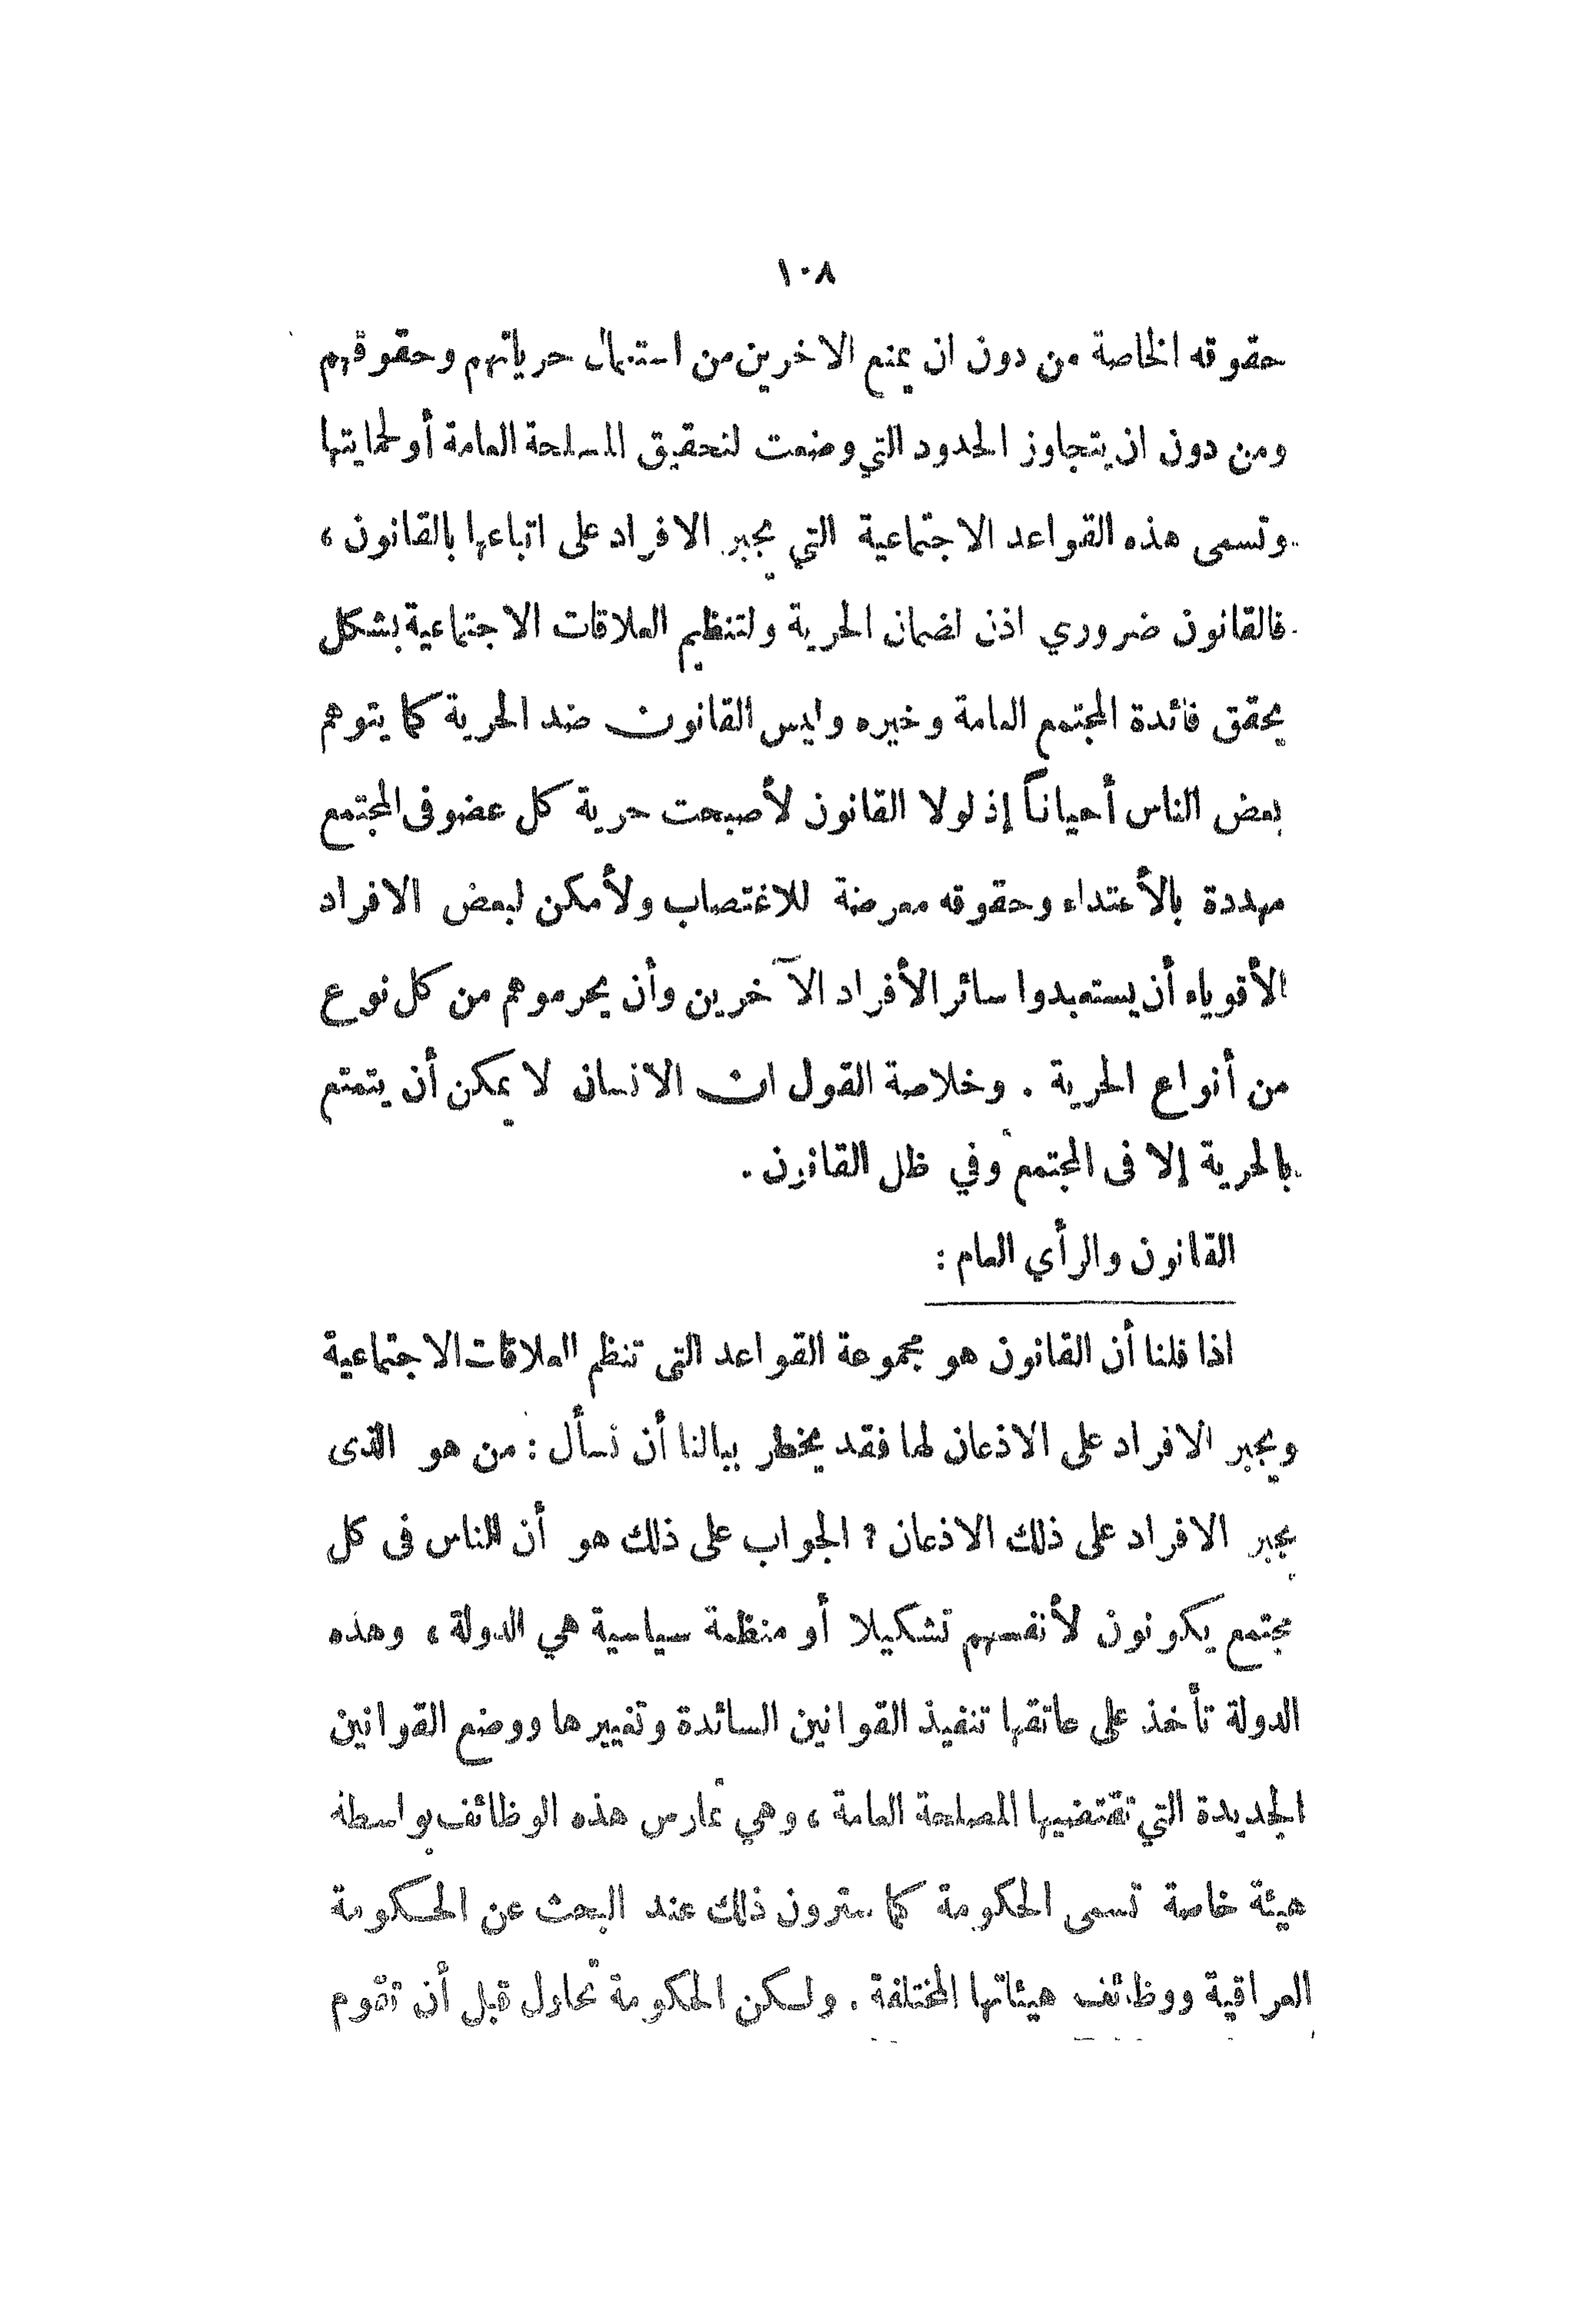 ١٠٨
حقوقه الخاصة من دون ان يمنع الاخرين من استعمال حرياتهم وحقوقهم
ومن دون ان يتجاوز الحدود التي وضعت لتحقيق المصلحة العامة أو لحمايتها
وتسمى هذه القواعد الاجتماعية التي يجبر الافراد على اتباعها بالقانون ،
فالقانون ضروري اذن لضمان الحرية ولتنظيم العلاقات الاجتماعية بشكل
يحقق فائدة المجتمع العامة وخيره وليس القانون ضد الحرية كما يتوهم
بعض الناس أحياناً إذ لولا القانون لأصبحت حرية كل عضو فى المجتمع
مهددة بالأعتداء وحقوقه معرضة للاغتصاب ولأمكن لبعض الافراد
الأقوياء أن يستعبدوا سائر الأفراد الآخرين وأن يحرموهم من كل نوع
من أنواع الحرية . وخلاصة القول ان الانسان لا يمكن أن يتمتع
بالحرية إلا فى المجتمع وفي ظل القانون .
القانون والرأي العام :
اذا قلنا أن القانون هو مجموعة القواعد التى تنظم العلاقات الاجتماعية
ويجبر الافراد على الاذعان لها فقد يخطر ببالنا أن نسأل : من هو الذى
يجبر الافراد على ذلك الاذعان ? الجواب على ذلك هو أن الناس فى كل
مجتمع يكونون لأنفسهم تشكيلا أو منظمة سياسية هي الدولة ، وهذه
الدولة تأخذ على عاتقها تنفيذ القوانين السائدة وتغييرها ووضع القوانين
الجديدة التي تقتضيها المصلحة العامة ، وهي تمارس هذه الوظائف بواسطة
هيئة خاصة تسمى الحكومة كما سترون ذلك عند البحث عن الحكومة
العراقية ووظائف هيئاتها المختلفة . ولكن الحكومة تحاول قبل أن تقوم